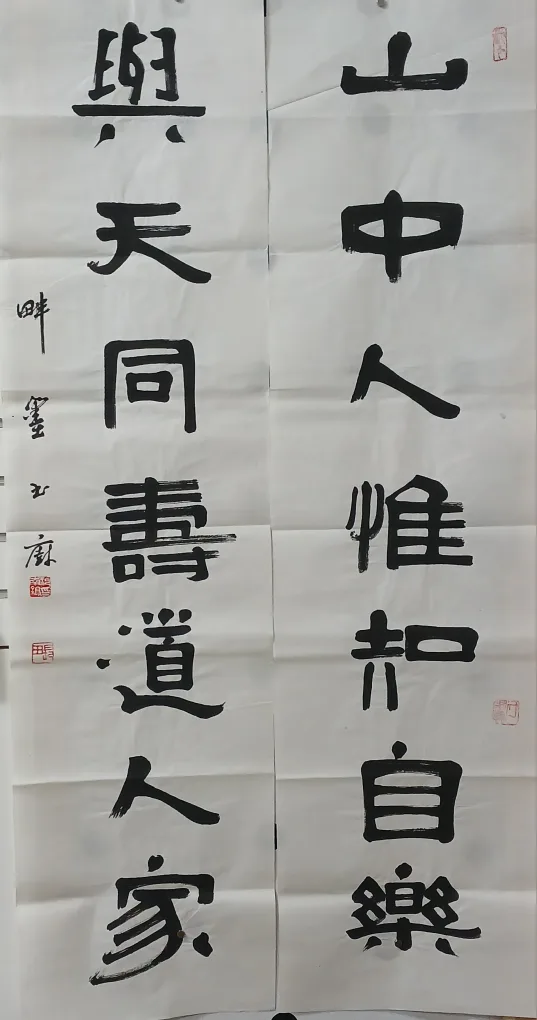 山中人惟知自樂
與天同壽道人家
畔墨书麻